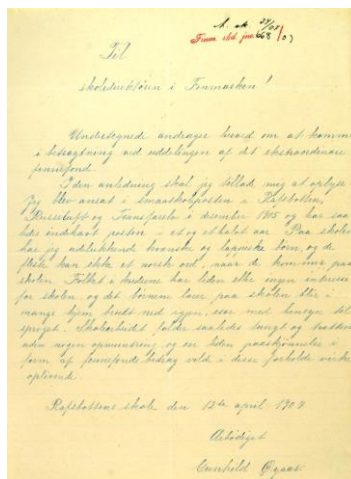 Til
skoledirektøren i Finmarken!
Undertegnede andrager herved om at komme
i betragtning ved uddelingen af det ekstraordinære
finnefond.
I den anledning skal jeg tillade mig at oplyse
Jeg blev ansat i smaaskoleposten i Rafsbotten,
og Transfarelv i december 1905 og har saa
ledes indehavt posten i et og et halvt aar. Paa skolen
har jeg udelukkende kvænske og lappiske børn, og de
fleste kan ikke et norsk ord, naar de kommer paa
skolen. Folket i kredsene har liden eller ingen interesse
for skolen, og det børnene lærer paa skolen blir i
mange hjem brudt ned igjen, især med hensyn til
sproget. Skolearbeidet falder saaledes tungt og
uden nogen opmuntring, og en liden paaskjønnelse i
form af finnefondsbidrag vilde i disse forholde virke
oplivende.
Rafsbottens skole den 12te april 1907.
Ærbødigst